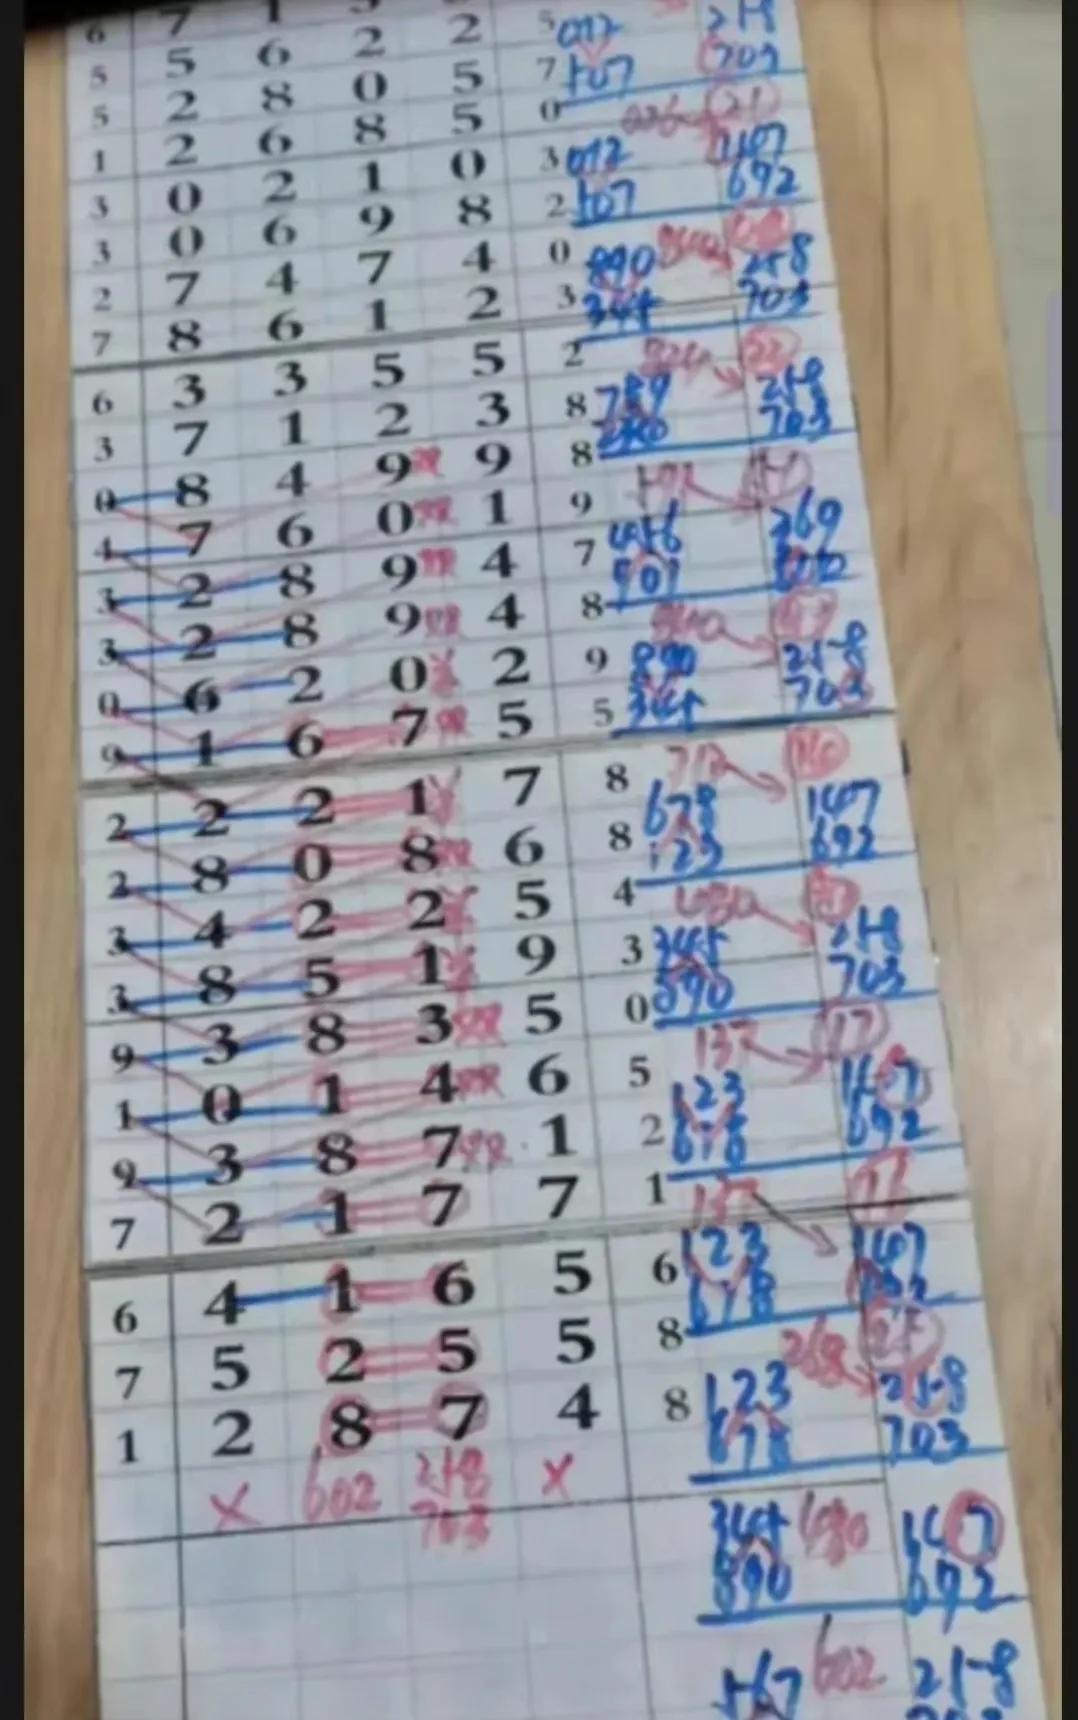 6 7 1 2
5 5 6 2 2 5 012
5 2 8 0 5 7 107 703
1 2 6 8 5 0
3 0 2 1 0 3 012 147
3 0 6 9 8 2 107 692
2 7 4 7 4 0 890 258
7 8 6 1 2 3 345 703
6 3 3 5 5 2
3 7 1 2 3 8 789 258
0 8 4 9 双 9 8 703
4 7 6 0 双 1 9
3 2 8 9 双 4 7 456 369
3 2 8 9 双 4 8 901
0 6 2 0 2 9 890 258
9 1 6 7 双 5 5 345 703
2 2 2 1 7 8 712
2 8 0 8 双 6 8 678 147
3 4 2 2 5 4 123 692
3 8 5 1 9 3 345 258
9 3 8 3 双 5 0 890 703
1 0 1 4 双 6 5 137 17
9 3 8 7 双 1 2 123 147
7 2 1 7 7 1 678 692
137
6 4 1 6 5 6 123 147
7 5 2 5 5 8 678
268
1 2 8 7 4 8 123 258
678 703
× 602 258 ×
703
345 480 147
890 692
567 602 258